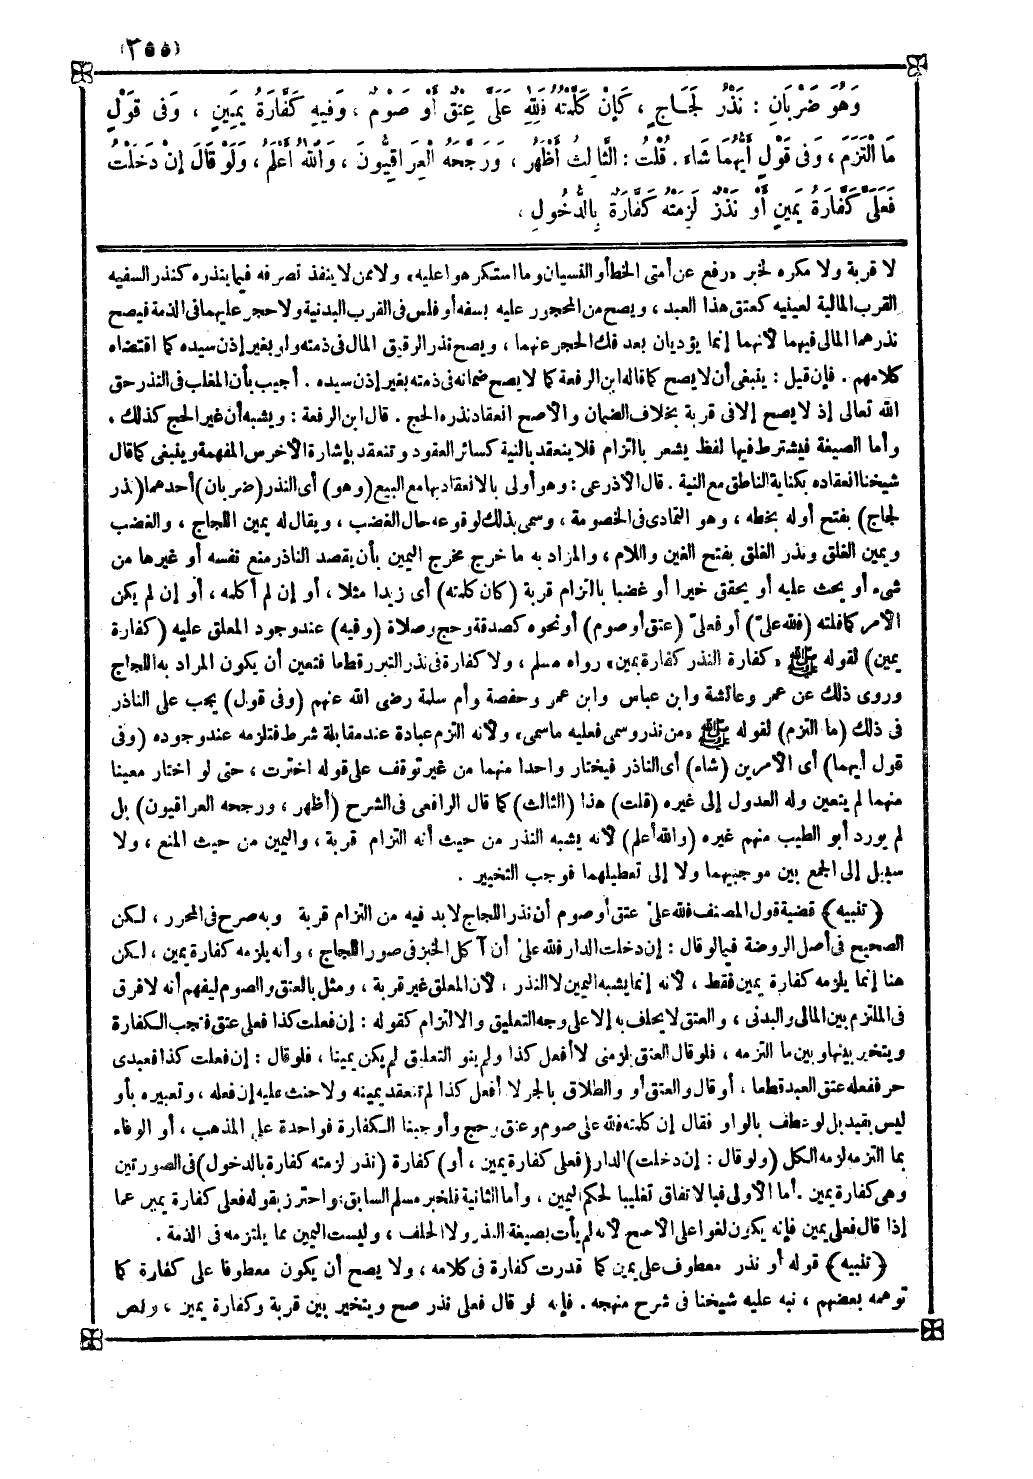 (٣٥٥)
وَهُوَ ضَرْبَانِ : نَذْرُ لَجَاجٍ ، كَإِنْ كَلَّمْتُهُ فَلِلّٰهِ عَلَيَّ عِتْقٌ أَوْ صَوْمٌ ، وَفِيهِ كَفَّارَةُ يَمِينٍ ، وَفِى قَوْلٍ
مَا الْتَزَمَ ، وَفِى قَوْلٍ أَيُّهُمَا شَاءَ . قُلْتُ : الثَّالِثُ أَظْهَرُ ، وَرَجَّحَهُ الْعِرَاقِيُّونَ ، وَاللّٰهُ أَعْلَمُ ، وَلَوْ قَالَ إِنْ دَخَلْتُ
فَعَلَيَّ كَفَّارَةُ يَمِينٍ أَوْ نَذْرٌ لَزِمَتْهُ كَفَّارَةٌ بِالدُّخُولِ ،
لا قربة ولا مكره لخبر «رفع عن أمتى الخطأ والنسيان وما استكرهوا عليه» ولا ممن لا ينفذ تصرفه فيما ينذره كنذر السفيه
القرب المالية لعينيه كعتق هذا العبد ، ويصح من المحجور عليه بسفه أو فلس فى القرب البدنية ولا حجر عليهما فى الذمة فيصح
نذرهما المالى فيهما لأنهما إنما يؤديان بعد فك الحجر عنهما ، ويصح نذر الرقيق المال فى ذمته ولو بغير إذن سيده كما اقتضاه
كلامهم . فإن قيل : ينبغى أن لا يصح كما قاله ابن الرفعة كما لا يصح ضمانه فى ذمته بغير إذن سيده . أجيب بأن المغلب فى النذر حق
الله تعالى إذ لا يصح إلا فى قربة بخلاف الضمان والأصح انعقاد نذره الحج . قال ابن الرفعة : ويشبه أن غير الحج كذلك ،
وأما الصيغة فيشترط فيها لفظ يشعر بالتزام فلا ينعقد بالنية كسائر العقود وتنعقد بإشارة الأخرس المفهمة وينبغى كما قال
شيخنا انعقاده بكناية الناطق مع النية . قال الأذرعى : وهو أولى بالانعقاد بها مع البيع (وهو) أى النذر (ضربان) أحدهما (نذر
لجاج) بفتح أوله بخطه ، وهو التمادى فى الخصومة ، وسمى بذلك لوقوعه حال الغضب ، ويقال له يمين اللجاج ، والغضب
ويمين الغلق ونذر الغلق بفتح الغين واللام ، والمراد به ما خرج مخرج اليمين بأن يقصد الناذر منع نفسه أو غيرها من
شىء أو يحث عليه أو يحقق خبرا أو غضبا بالتزام قربة (كإن كلمته) أى زيدا مثلا ، أو إن لم أكلمه ، أو إن لم يكن
الأمر كما قلته (فلله علىّ) أو فعلىّ (عتق أو صوم) أو نحوه كصدقة وحج وصلاة (وفيه) عند وجود المعلق عليه (كفارة
يمين) لقوله ﷺ «كفارة النذر كفارة يمين» رواه مسلم ، ولا كفارة فى نذر التبرر قطعا فتعين أن يكون المراد به اللجاج
وروى ذلك عن عمر وعائشة وابن عباس وابن عمر وحفصة وأم سلمة رضى الله عنهم (وفى قول) يجب على الناذر
فى ذلك (ما التزم) لقوله ﷺ «من نذر وسمى فعليه ماسمى» ولأنه التزم عبادة عند مقابلة شرط فتلزمه عند وجوده (وفى
قول أيهما) أى الأمرين (شاء) أى الناذر فيختار واحدا منهما من غير توقف على قوله اخترت ، حتى لو اختار معينا
منهما لم يتعين وله العدول إلى غيره (قلت) هذا (الثالث) كما قال الرافعى فى الشرح (أظهر ، ورجحه العراقيون) بل
لم يورد أبو الطيب منهم غيره (والله أعلم) لأنه يشبه النذر من حيث أنه التزام قربة ، واليمين من حيث المنع ، ولا
سبيل إلى الجمع بين موجبيهما ولا إلى تعطيلهما فوجب التخيير .
(تنبيه) قضية قول المصنف فلله علىّ عتق أو صوم أن نذر اللجاج لا بد فيه من التزام قربة وبه صرح فى المحرر ، لكن
الصحيح فى أصل الروضة فيما لو قال : إن دخلت الدار فلله علىّ أن آكل الخبز فى صور اللجاج ، وأنه يلزمه كفارة يمين ، لكن
هنا إنما يلزمه كفارة يمين فقط ، لأنه إنما يشبه اليمين لا النذر ، لأن المعلق غير قربة ، ومثل بالعتق والصوم ليفهم أنه لا فرق
فى الملتزم بين المالى والبدنى ، والعتق لا يحلف به إلا على وجه التعليق والالتزام كقوله : إن فعلت كذا فعلى عتق فتجب الكفارة
ويتخير بينها وبين ما التزمه ، فلو قال العتق يلزمنى لا أفعل كذا ولم ينو التعليق لم يكن يمينا ، فلو قال : إن فعلت كذا فعبدى
حر ففعله عتق العبد قطعا ، أو قال والعتق أو والطلاق بالجر لا أفعل كذا لم تنعقد يمينه ولا حنث عليه إن فعله ، وتعبيره بأو
ليس بقيد بل لو عطف بالواو فقال إن كلمته فلله على صوم وعتق وحج وأوجبنا الكفارة فواحدة على المذهب ، أو الوفاء
بما التزمه لزمه الكل (ولو قال : إن دخلت) الدار (فعلى كفارة يمين ، أو) كفارة (نذر لزمته كفارة بالدخول) فى الصورتين
وهى كفارة يمين . أما الأولى فبالاتفاق تغليبا لحكم اليمين ، وأما الثانية فلخبر مسلم السابق : واحترز بقوله فعلى كفارة يمين عما
إذا قال فعلى يمين فإنه يكون لغوا على الأصح لأنه لم يأت بصيغة النذر ولا الحلف ، وليست اليمين مما يلتزمه فى الذمة .
(تنبيه) قوله أو نذر معطوف على يمين كما قدرت كفارة فى كلامه ، ولا يصح أن يكون معطوفا على كفارة كما
توهمه بعضهم ، نبه عليه شيخنا فى شرح منهجه . فإنه لو قال فعلى نذر صح ويتخير بين قربة وكفارة يمين ، ونص